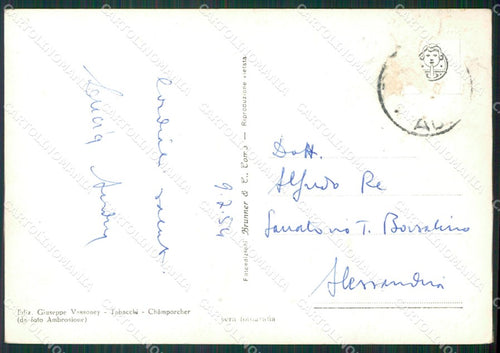 Cordiali saluti
9.7.54
Dott.
Alfredo Re
Sanatorio T. Borsalino
Alessandria
Fotoedizioni Brunner & C., Como - Riproduzione vietata
Ediz. Giuseppe Vassoney - Tabacchi - Champorcher
(da foto Ambrosione)
vera fotografia
CARTOLINOMANIA